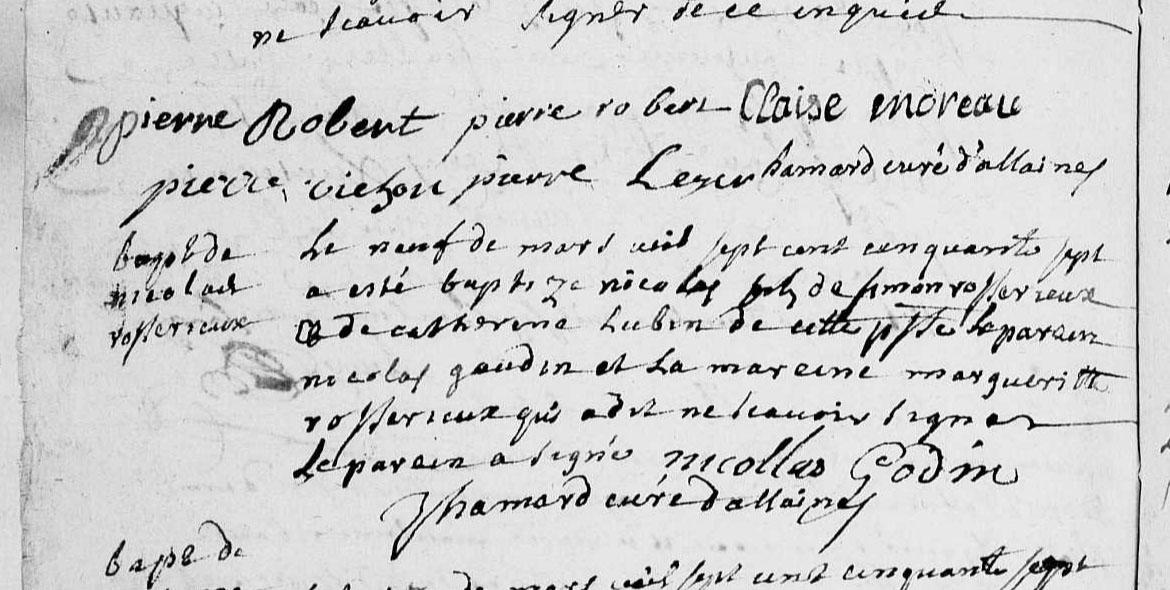 ne scavoir signer de ce enquis
pierre Robert pierre robert Claise moreau
pierre vichou pierre Leger hamard curé d'allaines
bapt de
nicolas
rosserieux
Le neuf de mars mil sept cent cinquante sept
a esté baptizé nicolas fils de simon rosserieux
& de catherine Lubin de cette psse Le parein
nicolas gaudin et La mareine margueritte
rosserieux qui a dit ne scavoir signer
Le parein a signé nicollas Godin
Jhamard curé d allaines
bapt de
de mars mil sept cent cinquante sept